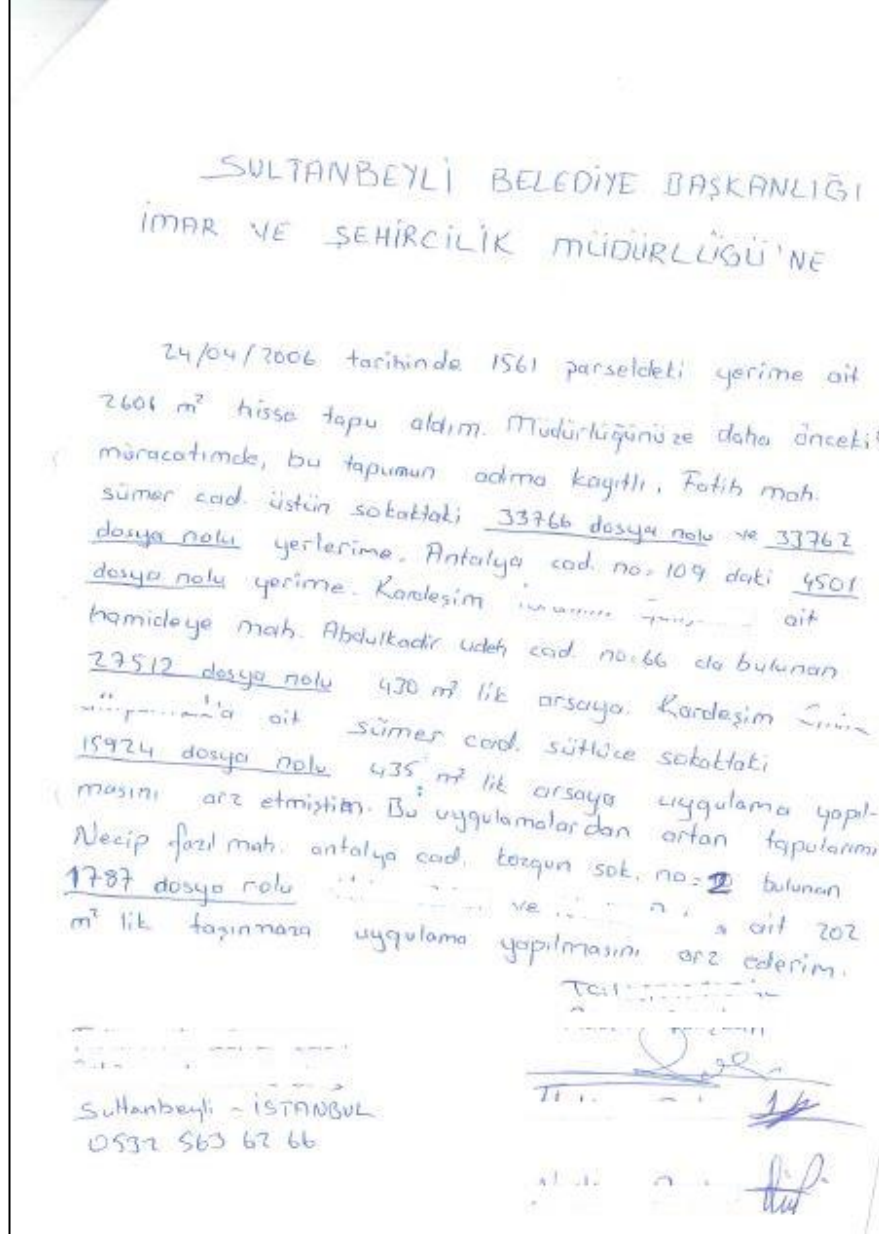 SULTANBEYLİ BELEDİYE BAŞKANLIĞI
İMAR VE ŞEHİRCİLİK MÜDÜRLÜĞÜ'NE
24/04/2006 tarihinde 1561 parseldeki yerime ait
2606 m² hisse tapu aldım. Müdürlüğünüze daha önceki
müracatımde, bu tapumun adıma kayıtlı, Fatih mah.
sümer cad. üstün sokaktaki 33766 dosya nolu ve 33762
dosya nolu yerlerime. Antalya cad. no: 109 daki 4501
dosya nolu yerime. Kardeşim ait
hamideye mah. Abdulkadir udeh cad. no:66 da bulunan
27512 dosya nolu 430 m² lik arsaya. Kardeşim
ait sümer cad. sütlüce sokaktaki
15924 dosya nolu 435 m² lik arsaya uygulama yapıl-
masını arz etmiştim. Bu uygulamalardan artan tapularımı
Necip fazıl mah. antalya cad. kozgun sok. no: 2 bulunan
1787 dosya nolu ve ait 202
m² lik taşınmaza uygulama yapılmasını arz ederim.
Sultanbeyli - İSTANBUL
0532 563 62 66